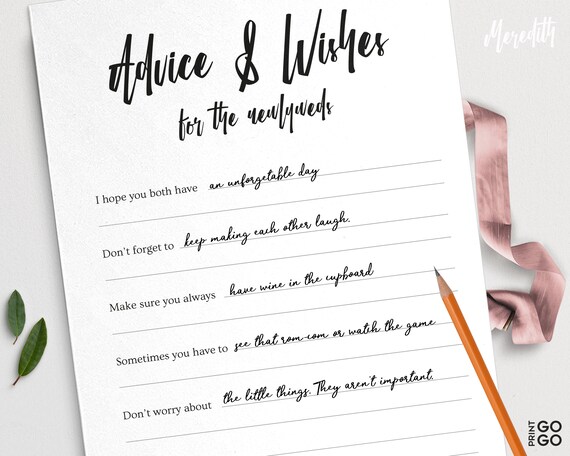 Meredith
Advice & Wishes
for the newlyweds
I hope you both have an unforgetable day
Don't forget to keep making each other laugh.
Make sure you always have wine in the cupboard
Sometimes you have to see that rom-com or watch the game
Don't worry about the little things. They aren't important.
PRINT
GO
GO